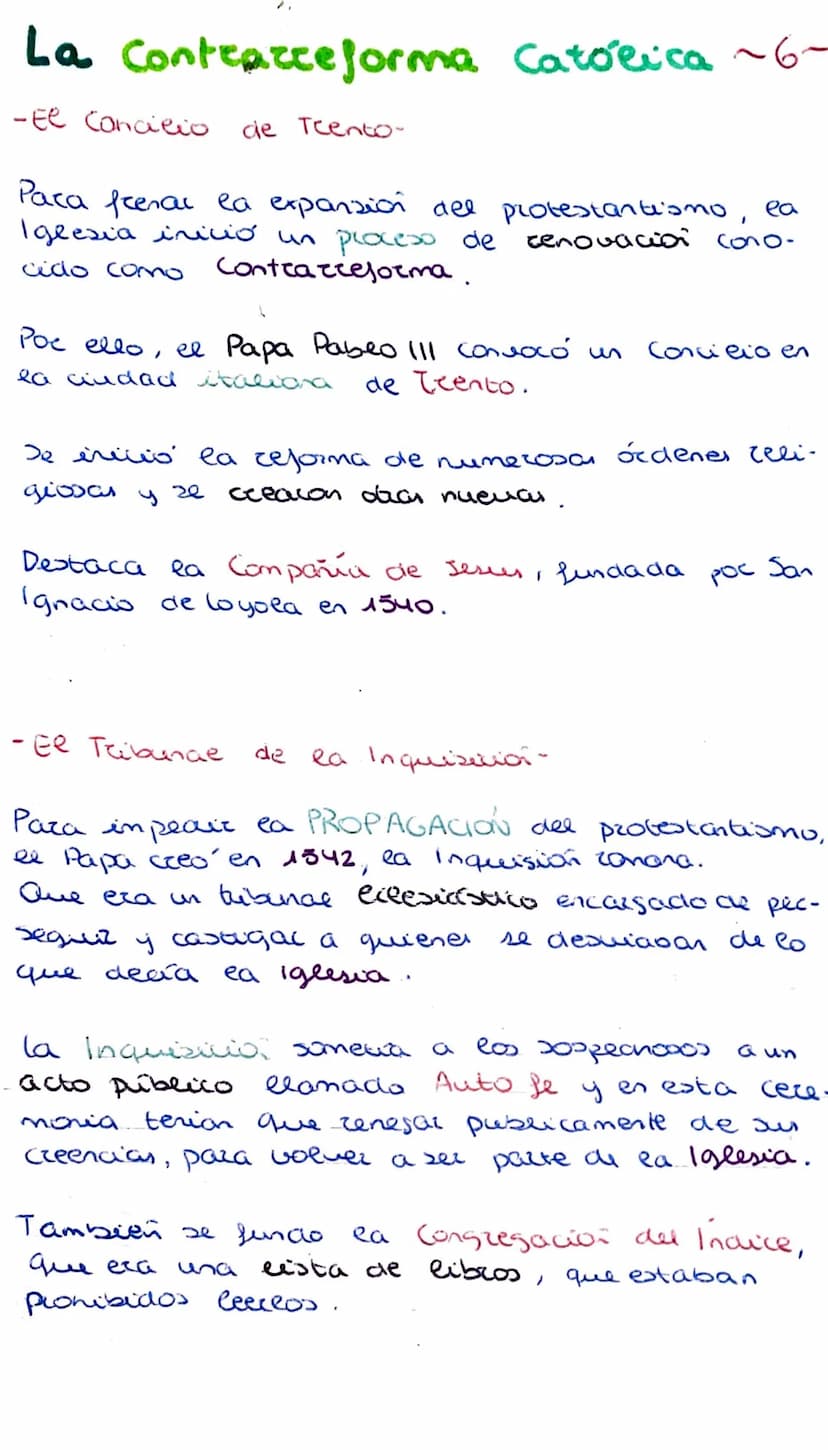 La Contrarreforma Católica ~6~
-El Concilio de Trento-
Para frenar la expansión del protestantismo, la
Iglesia inició un proceso de renovación cono-
cido como Contrarreforma.
Por ello, el Papa Pablo III convocó un Concilio en
la ciudad italiana de Trento.
Se inició la reforma de numerosas órdenes reli-
giosas y se crearon otras nuevas.
Destaca la Compañía de Jesus, fundada por San
Ignacio de Loyola en 1540.
-El Tribunal de la Inquisición-
Para impedir la PROPAGACIÓN del protestantismo,
el Papa creó en 1542, la Inquisión romana.
Que era un tribunal eclesiástico encargado de per-
seguir y castigar a quienes se desviaban de lo
que decía la Iglesia.
La Inquisición sometía a los sospechosos a un
acto público llamado Auto fe y en esta cere-
monia tenían que renegar publicamente de sus
creencias, para volver a ser parte de la Iglesia.
También se fundo la Congregación del Índice,
que era una lista de libros, que estaban
prohibidos leerlos.